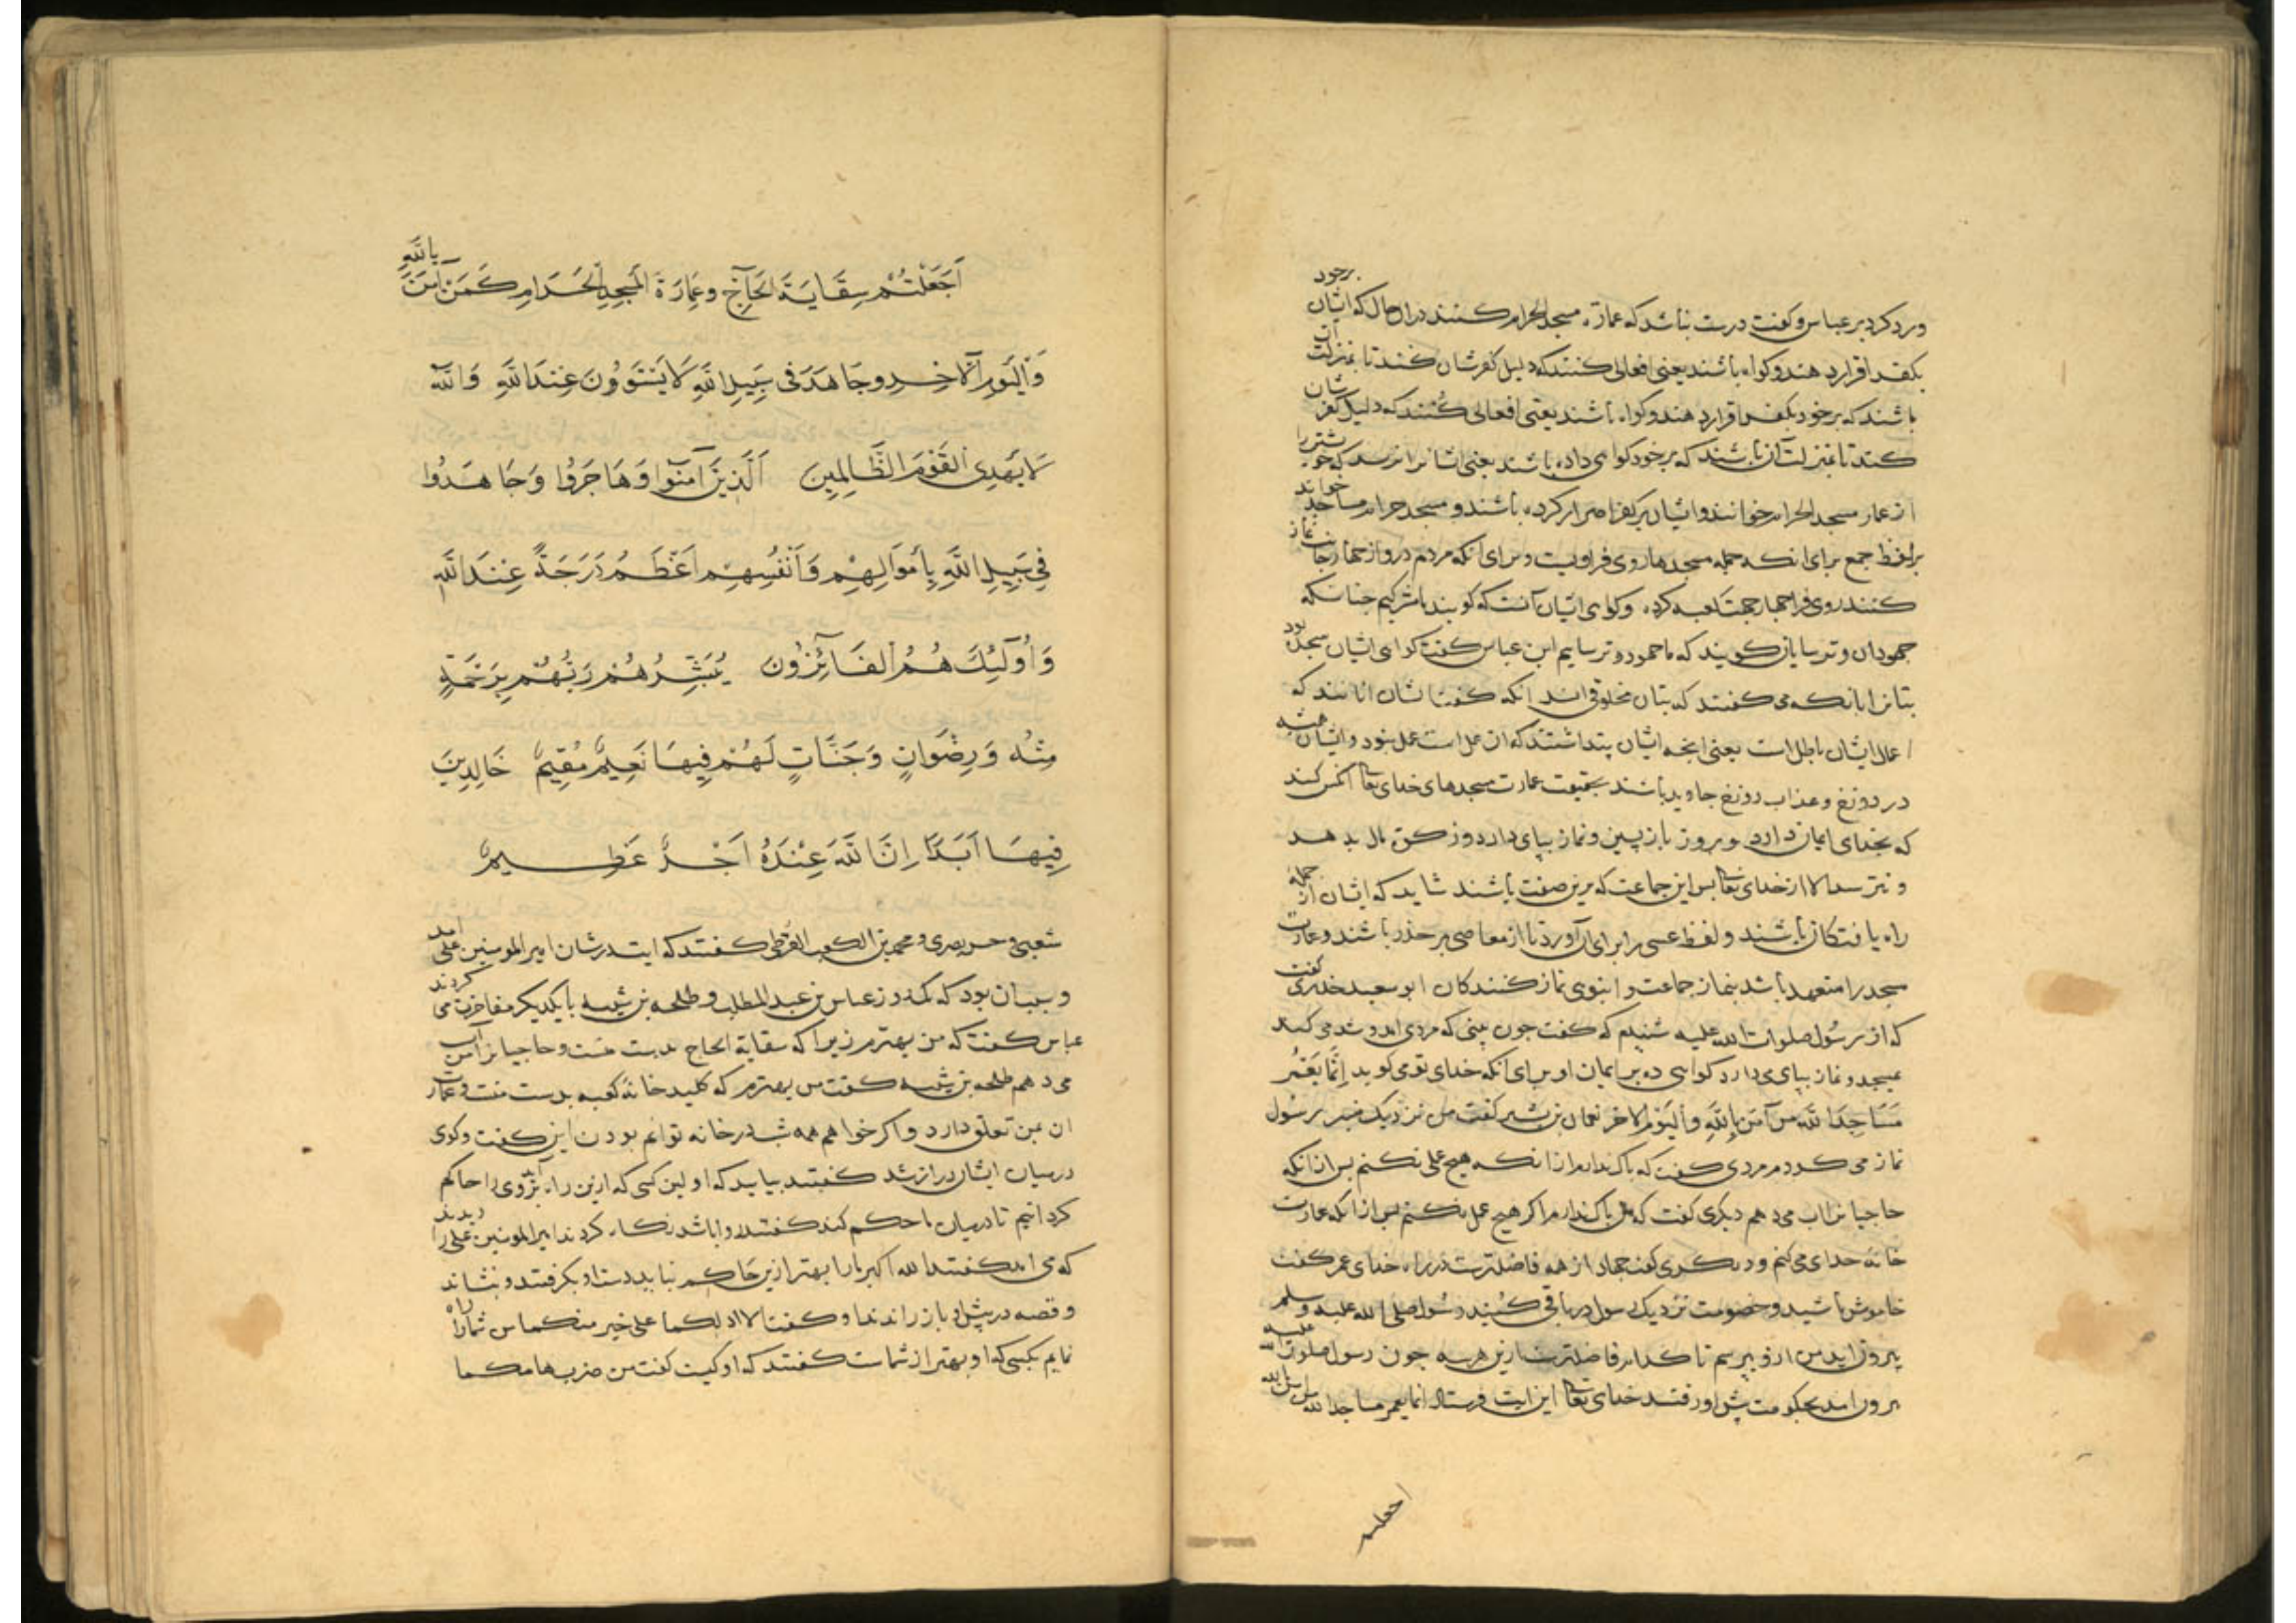 ورد کرد بر عباس و کفت درست نباشد که عمارة مسجد الحرام کنند دران حال که ایشان برخود
بکفر اقرار دهند و کواه باشند یعنی افعالی کنند که دلیل کفرشان کند تا بمنزلت آن
باشند که برخود بکفر اقرار دهند و کواه باشند یعنی افعالی کنند که دلیل کفرشان
کند تا بمنزلت آن باشند که برخود کواهی داده باشند یعنی ایشانرا نرسد که خویشتن را
از عمار مسجد الحرام خوانند و ایشان بر کفر اصرار کرده باشند و مسجد حرام مساجد خواند
بر لفظ جمع برای انکه جمله مسجدها روی فرا ویست و برای انکه مردم در و از جهار جانب نماز
کنند روی فرا جهار جهت کعبه کرده و کواهی ایشان آنست که کویند ما مشرکیم جنانکه
جهودان و ترسایان کویند که ما جهود و ترساییم ابن عباس کفت کواهی ایشان سجده بود
بتانرا بانکه می کفتند که بتان مخلوق اند انکه کفت ایشان انانند که
اعمال ایشان باطل است یعنی انجه ایشان پنداشتند که ان عمل است عمل نبود و ایشان همیشه
در دوزخ و عذاب دوزخ جاوید باشند بحقیقت عمارت مسجدهای خدای تعالی آنکس کند
که بخدای ایمان دارد و بروز بازپسین و نماز بپای دارد و زکوة مال بدهد
و نترسد الا از خدای تعالی پس این جماعت که برین صفت باشند شاید که ایشان از جمله
راه یافتکان باشند و لفظ عسی را برای آن آورد تا از معاصی بر حذر باشند و عمارت
مسجد را متعهد باشد بنماز جماعت و انبوهی نماز کنندکان ابو سعید خدری کفت
که از رسول صلوات الله علیه شنیدم که کفت جون بینی که مردی امد و شد می کند
بمسجد و نماز بپای می دارد کواهی ده بر ایمان او برای انکه خدای تو می کوید اِنَّمَا یَعْمُرُ
مَسَاجِدَ اللّٰهِ مَن آمَنَ بِاللّٰهِ وَالْیَوْمِ الآخر نعمان بن بشیر کفت من نزدیک منبر رسول
نماز می کردم مردی کفت که باک ندارم ازانکه هیچ عمل نکنم پس ازانکه
حاجیانرا اب می دهم دیکری کفت که من باک ندارم اکر هیچ عمل نکنم پس ازانکه عمارت
خانه خدای می کنم و دیکری کفت جهاد از همه فاضلترست در راه خدای عمر کفت
خاموش باشید و خصومت نزدیک رسول در باقی کنید رسول صلی الله علیه وسلم
بیرون اید من ازو بپرسم تا کدام فاضلترست ازین هر سه جون رسول صلوات الله علیه
بیرون امد بحکومت پیش او رفتند خدای تعالی این ایت فرستاد انما یعمر مساجد الله من امن بالله
اجعلتم
اَجَعَلْتُمْ سِقَایَةَ الحَآجِّ وعِمَارَةَ المَسْجِدِ الْحَرَامِ کَمَنْ آمَنَ بِاللّٰهِ
وَالْیَوْمِ الْآخِرِ وجَاهَدَ فی سَبِیلِ اللّٰهِ لَا یَسْتَوُونَ عِنْدَ اللّٰهِ وَاللّٰهُ
لَا یَهْدِی الْقَوْمَ الظَّالِمِینَ اَلَّذِینَ آمَنُوا وَهَاجَرُوا وَجَاهَدُوا
فِی سَبِیلِ اللّٰهِ بِأَمْوَالِهِمْ وَأَنْفُسِهِمْ اَعْظَمُ دَرَجَةً عِنْدَ اللّٰهِ
وَاُولَئِكَ هُمُ الْفَائِزُون یُبَشِّرُهُمْ رَبُّهُمْ بِرَحْمَةٍ
مِنْهُ وَرِضْوَانٍ وَجَنَّاتٍ لَهُمْ فِیهَا نَعِیمٌ مُقِیمٌ خَالِدِینَ
فِیهَا اَبَدًا اِنَّ اللّٰهَ عِنْدَهُ اَجْرٌ عَظِیمٌ
شعبی و حسن بصری و محمد بن الکعب القرظی کفتند که ایت در شان امیر المومنین علی امد
و سبب ان بود که یک روز عباس بن عبد المطلب و طلحه بن شیبه با یکدیکر مفاخرت می کردند
عباس کفت که من بهترم زیرا که سقایة الحاج بدست منست و حاجیانرا من آب
می دهم طلحه بن شیبه کفت من بهترم که کلید خانه کعبه بدست منست و عمارت
ان بمن تعلق دارد و اکر خواهم همه شب در خانه توانم بودن این کفت وکوی
درمیان ایشان دراز شد کفتند بیاید که اولین کسی که ازین راه برآید وی را حاکم
کردانیم تا درمیان ما حکم کند کفتند روا باشد نکاه کردند امیر المومنین علی را دیدند
که می امد کفتند الله اکبر ما را بهتر ازین حاکم نباید دست او بکرفتند و بنشاند
و قصه در پیش او باز راندند او کفت الا ادلکما علی خیر منکما من شما را راه
نمایم بکسی که او بهتر از شماست کفتند که او کیست کفت من ضربهامکما